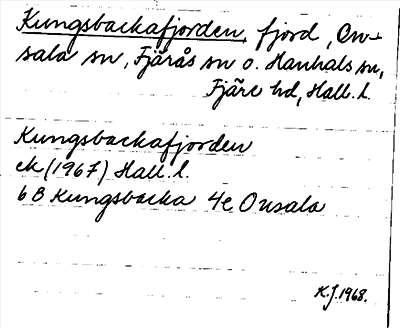 Kungsbackafjorden, fjord, On-
sala sn, Fjärås sn o. Hanhals sn,
Fjäre hd, Hall. l.
Kungsbackafjorden
ek (1967) Hall. l.
6 B Kungsbacka 4e Onsala
K.J. 1968.